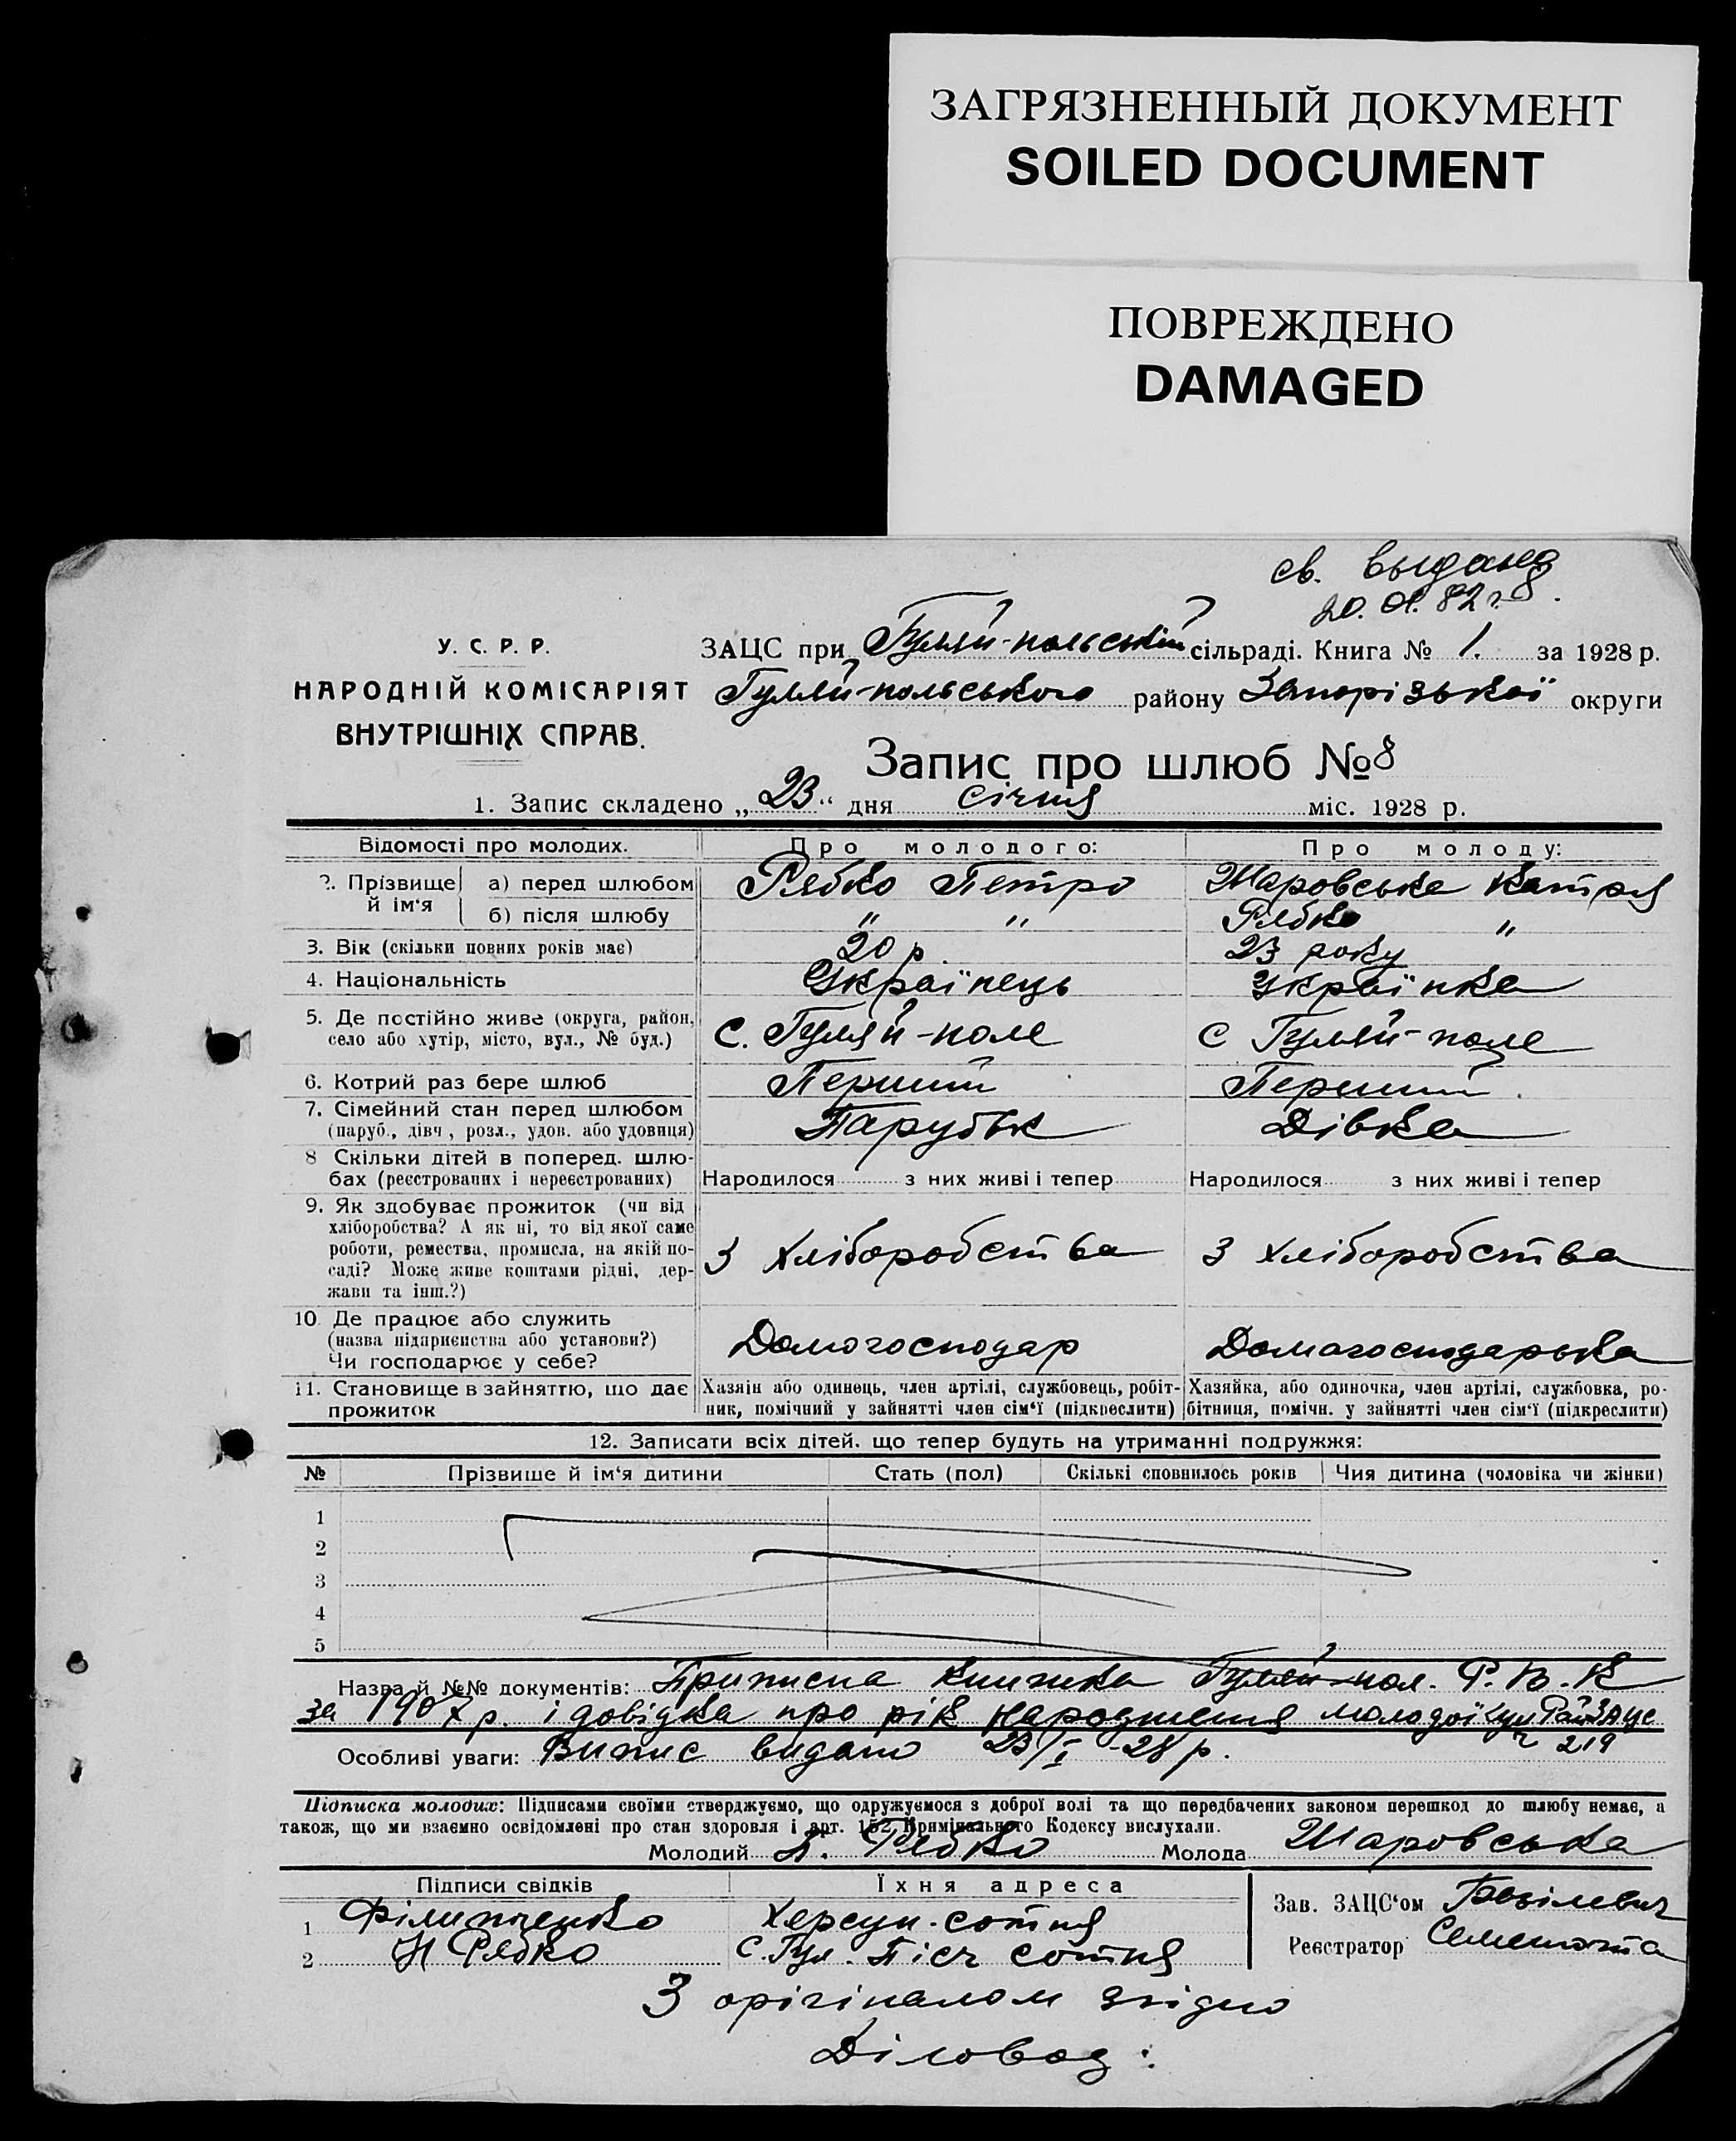 ЗАГРЯЗНЕННЫЙ ДОКУМЕНТ
SOILED DOCUMENT
ПОВРЕЖДЕНО
DAMAGED
св. выдано
У. С. Р. Р.
НАРОДНІЙ КОМІСАРІЯТ
ВНУТРІШНІХ СПРАВ.
ЗАЦС при Гуляй-польській сільраді. Книга № 1. за 1928 р.
Гуляй-польського району Запорізької округи
Запис про шлюб № 8
1. Запис складено „23“ дня січня міс. 1928 р.
Відомості про молодих. Про молодого: Про молоду:
2. Прізвище й ім‘я а) перед шлюбом Рябко Петро Шаровська Катря
б) після шлюбу " " Рябко "
3. Вік (скільки повних років має) 20 р. 23 року
4. Національність Українець Українка
5. Де постійно живе (округа, район, село або хутір, місто, вул., № буд.) С. Гуляй-поле С Гуляй-поле
6. Котрий раз бере шлюб Перший Перший
7. Сімейний стан перед шлюбом (паруб., дівч., розл., удов. або удовиця) Парубок Дівка
8 Скільки дітей в поперед. шлюбах (реєстрованих і нереєстрованих) Народилося з них живі і тепер Народилося з них живі і тепер
9. Як здобуває прожиток (чи від хліборобства? А як ні, то від якої саме роботи, ремества, промисла, на якій посаді? Може живе коштами рідні, держави та інш.?) З хліборобства З хліборобства
10. Де працює або служить (назва підприєнства або установи?) Чи господарює у себе? Домогосподар Домогосподарька
11. Становище в зайняттю, що дає прожиток Хазяін або одинець, член артілі, службовець, робітник, помічний у зайнятті член сім‘ї (підкреслити) Хазяйка, або одиночка, член артілі, службовка, робітниця, помічн. у зайнятті член сім‘ї (підкреслити)
12. Записати всіх дітей, що тепер будуть на утриманні подружжя:
№ Прізвище й ім‘я дитини Стать (пол) Скількі сповнилось років Чия дитина (чоловіка чи жінки)
1
2
3
4
5
Назва й №№ документів: Приписна книжка Гуляй-пол. Р.В.К
за 1907 р. і довідка про рік народження молодої
219
Особливі уваги: Випис видано 23/I-28 р.
Підписка молодих: Підписами своїми стверджуємо, що одружуємося з доброї волі та що передбачених законом перешкод до шлюбу немає, а
також, що ми взаємно освідомлені про стан здоровля і арт. 152 Кримінального Кодексу вислухали.
Молодий П. Рябко Молода Шаровська
Підписи свідків Їхня адреса
1 Філипченко Херсун. сотня
2 Н Рябко С. Гул. Піск сотня
Зав. ЗАЦС‘ом
Реєстратор
З орігіналом згідно
Діловод: